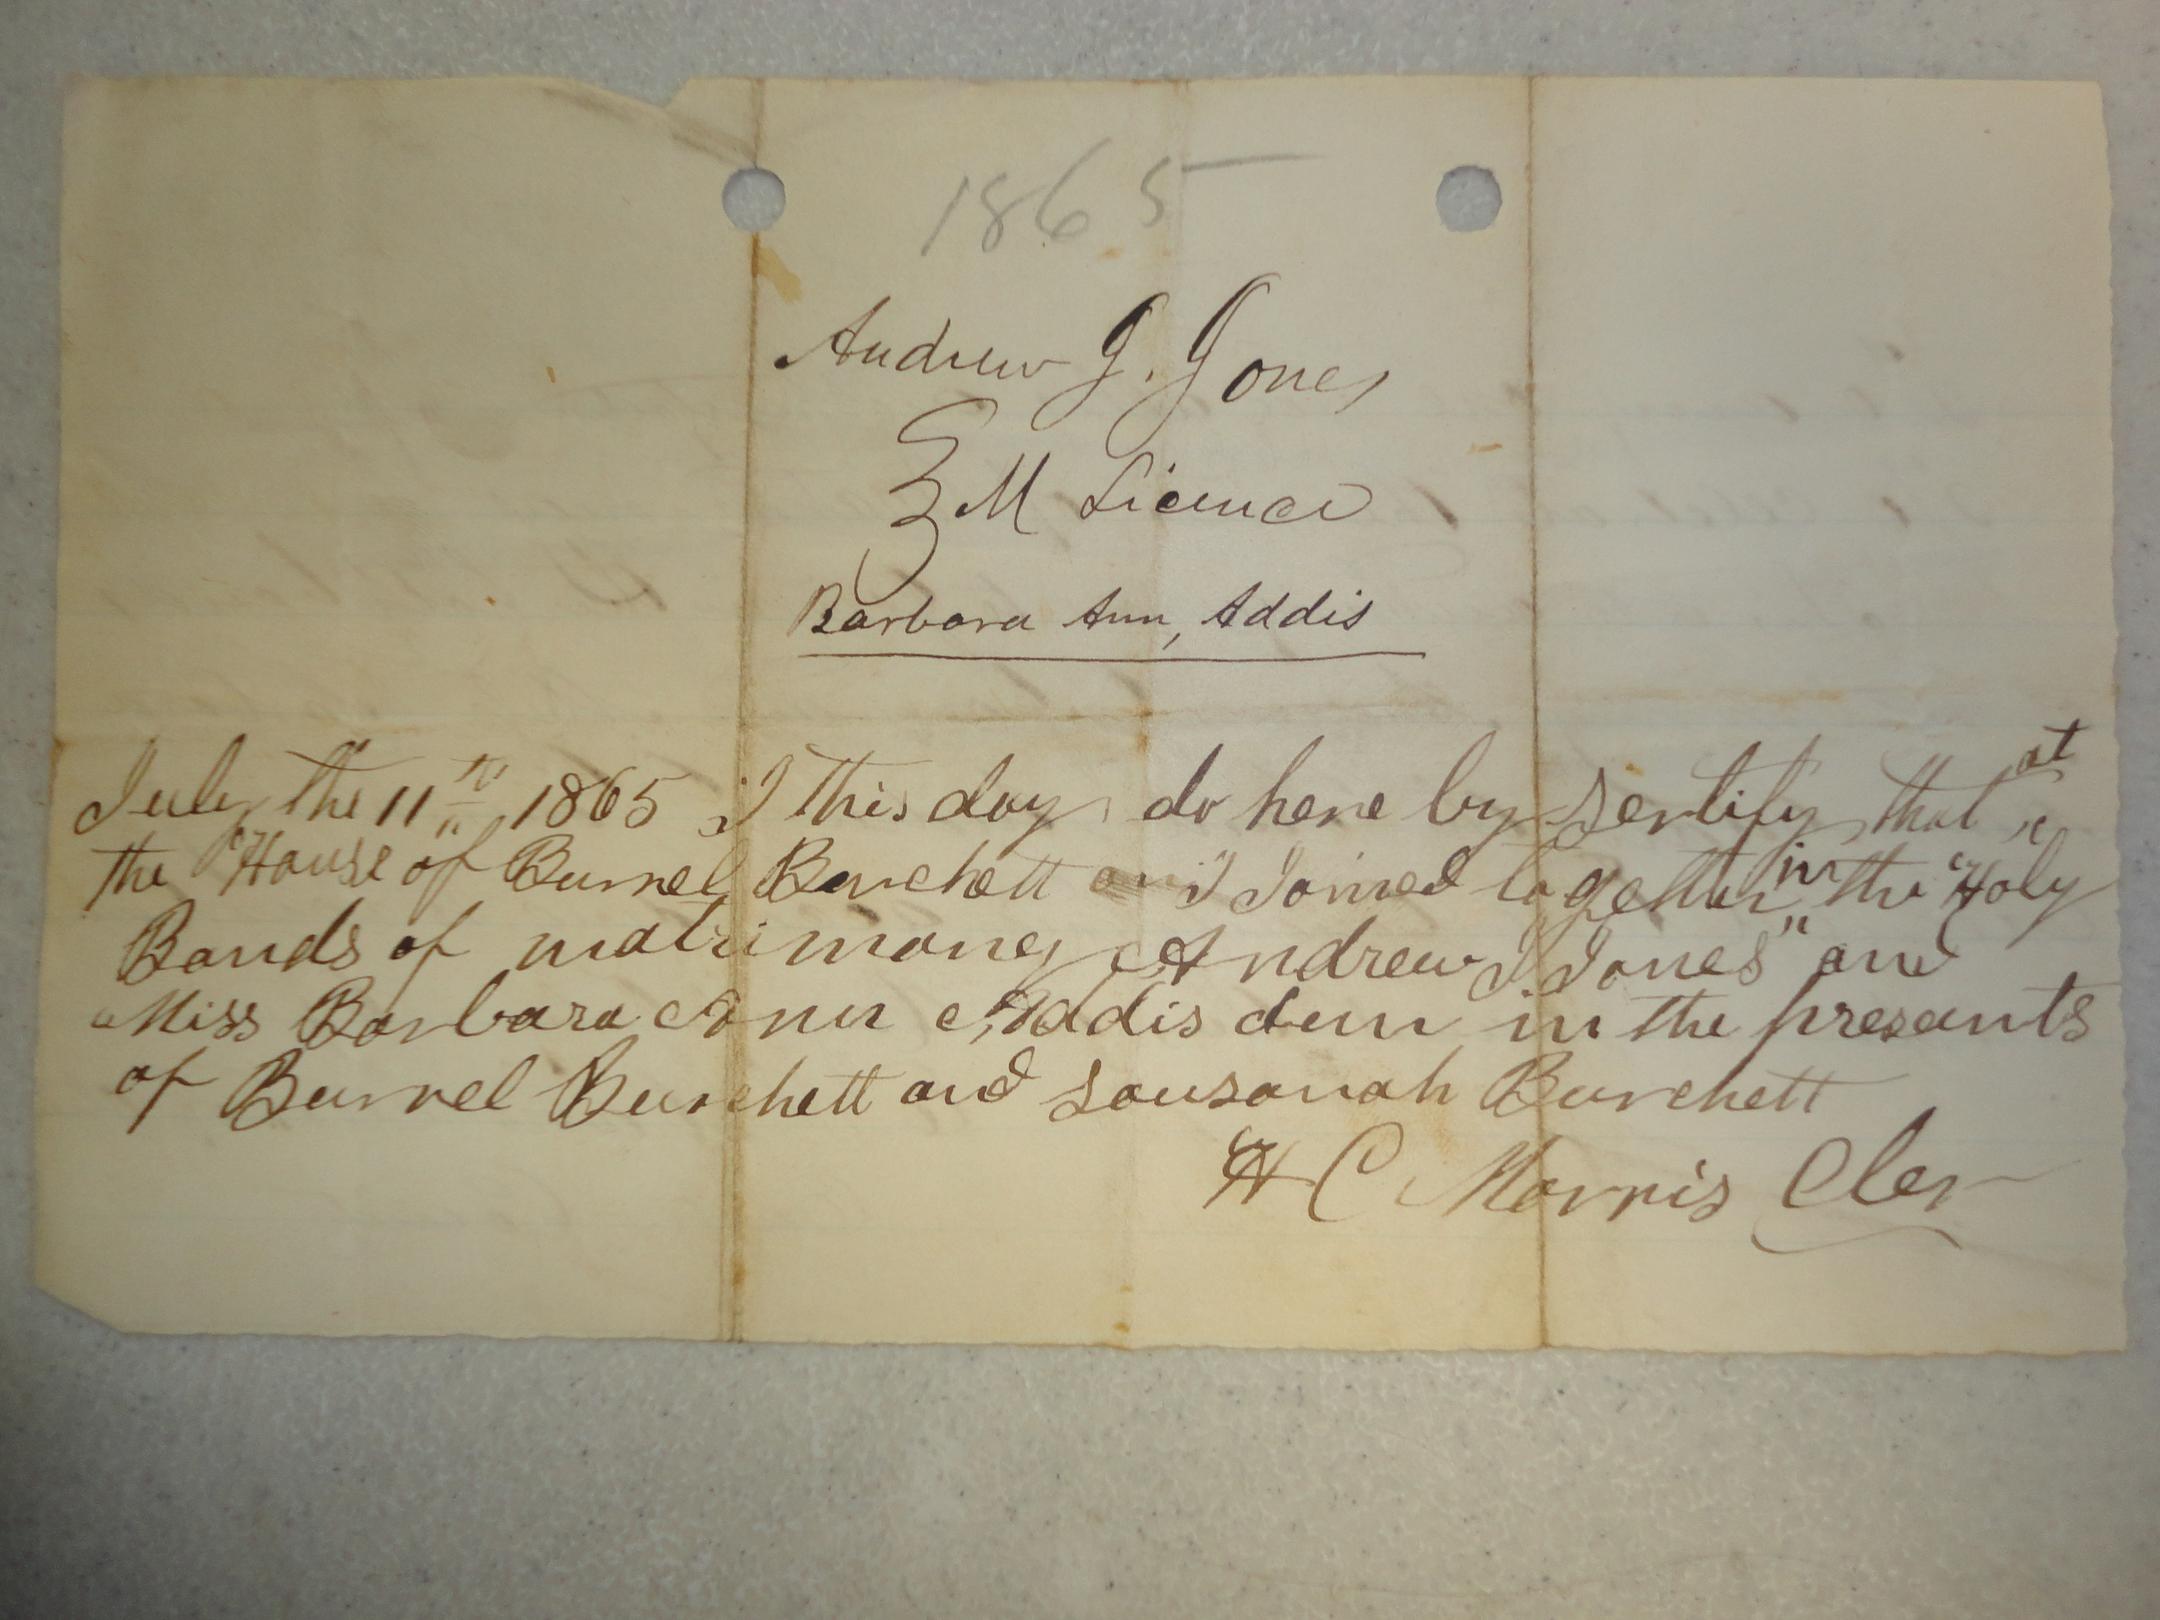 1865
Andrew J. Jones
M Licence
Barbara Ann, Addis
at
July the 11th 1865 I this day do here by sertify that
in
the House of Burrel Burchett I Joined together the Holy
Bands of matrimoney Andrew J Jones" and
Miss Barbara Ann Addis dun in the presants
of Burrel Burchett and Sousanah Burchett
H C Morris Cler